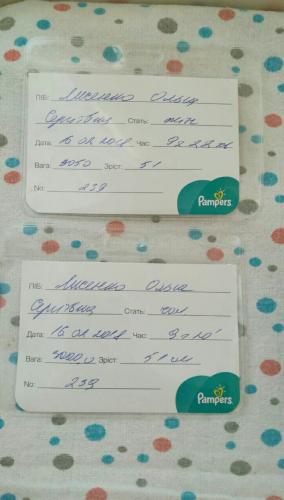 ПІБ: Лисенко Ольга
Сергіївна Стать: жін
Дата: 16 02 2018 Час: 9г 22 хв
Вага: 3050 Зріст: 51
No: 239
Pampers
ПІБ: Лисенко Ольга
Сергіївна Стать: чол
Дата: 16 02 2018 Час:
Вага: Зріст: 51 см
No: 239
Pampers